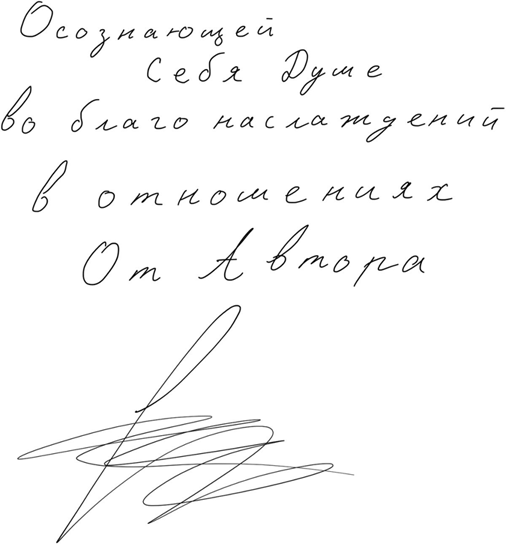 Осознающей
Себя Душе
во благо наслаждений
в отношениях
От Автора